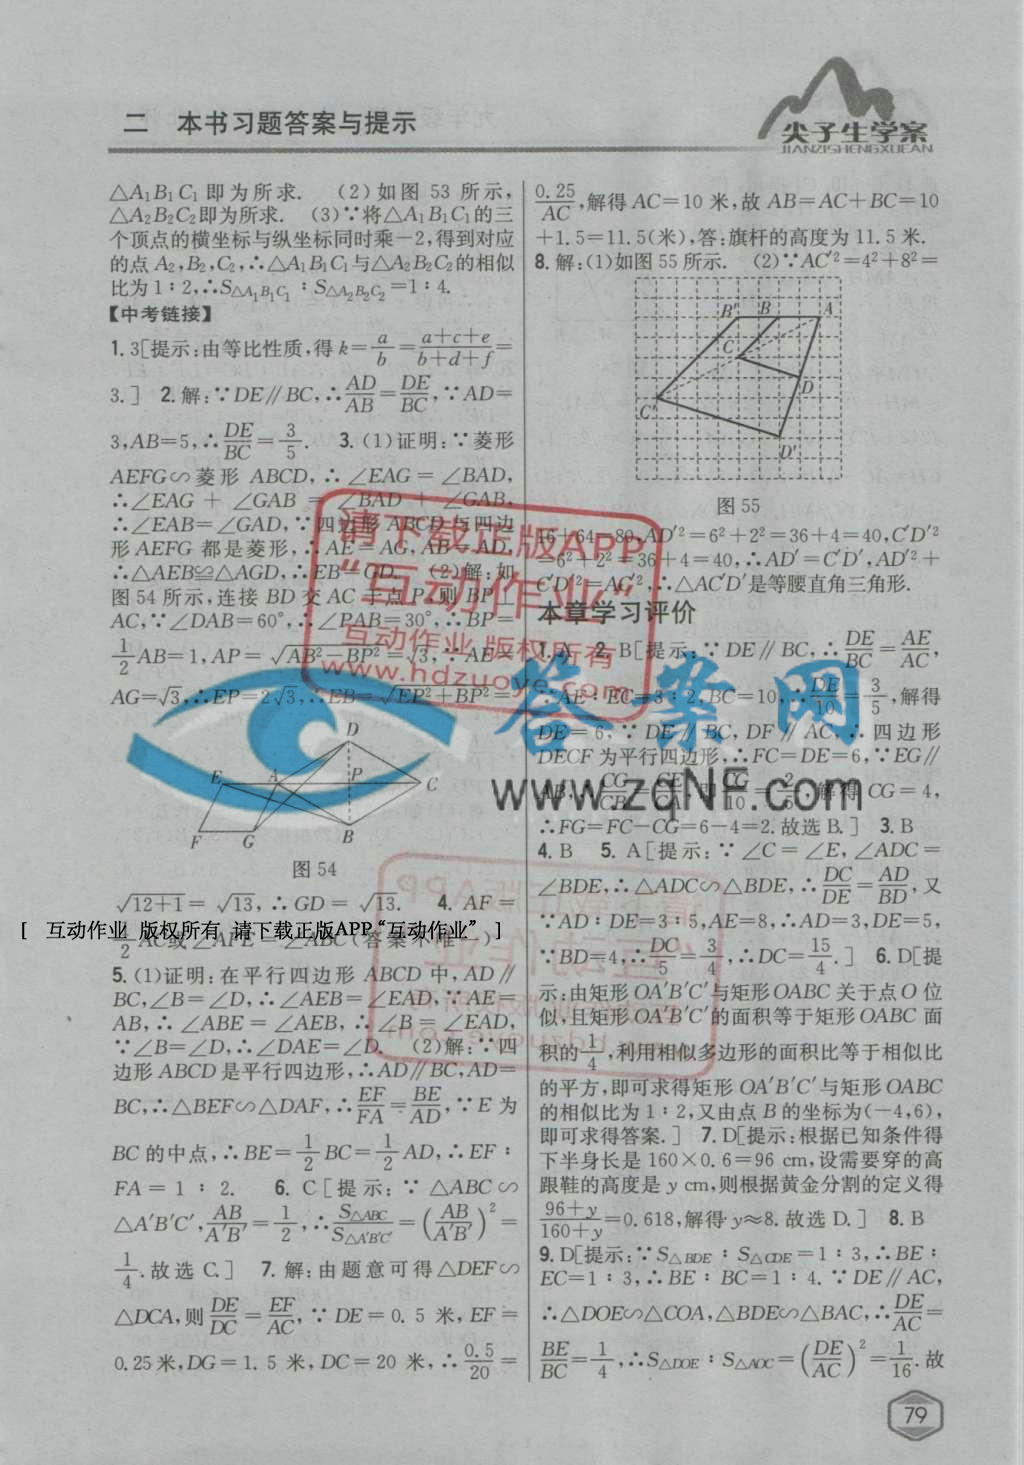 二 本书习题答案与提示
尖子生学案
JIANZISHENGXUEAN
△A₁B₁C₁即为所求. (2)如图 53 所示,
△A₂B₂C₂即为所求. (3)∵将△A₁B₁C₁的三
个顶点的横坐标与纵坐标同时乘-2,得到对应
的点A₂,B₂,C₂,∴△A₁B₁C₁与△A₂B₂C₂的相似
比为1∶2,∴S△A₁B₁C₁∶S△A₂B₂C₂=1∶4.
【中考链接】
1. 3[提示:由等比性质,得k=a/b=(a+c+e)/(b+d+f)=
3.] 2. 解:∵DE∥BC,∴AD/AB=DE/BC,∵AD=
3,AB=5,∴DE/BC=3/5. 3. (1)证明:∵菱形
AEFG∽菱形 ABCD,∴∠EAG=∠BAD,
∴∠EAG+∠GAB=∠BAD+∠GAB,
∴∠EAB=∠GAD,∵四边形 ABCD与四边
形AEFG都是菱形,∴AE=AG,AB=AD.
∴△AEB≌△AGD,∴EB=GD. (2)解:如
图54所示,连接BD交AC于点P,则BP⊥
AC,∵∠DAB=60°,∴∠PAB=30°,∴BP=
1/2AB=1,AP=√(AB²-BP²)=√3,∵AE=
AG=√3,∴EP=2√3,∴EB=√(EP²+BP²)=
D
E
A
P
C
F
G
B
图 54
√(12+1)=√13,∴GD=√13. 4. AF=
1/2AC或∠AFE=∠ABC(答案不唯一)
5. (1)证明:在平行四边形ABCD中,AD∥
BC,∠B=∠D,∴∠AEB=∠EAD,∵AE=
AB,∴∠ABE=∠AEB,∴∠B=∠EAD,
∵∠B=∠D,∴∠DAE=∠D. (2)解:∵四
边形ABCD是平行四边形,∴AD∥BC,AD=
BC,∴△BEF∽△DAF,∴EF/FA=BE/AD,∵E为
BC的中点,∴BE=1/2BC=1/2AD,∴EF∶
FA=1∶2. 6. C[提示:∵△ABC∽
△A′B′C′,AB/A′B′=1/2,∴S△ABC/S△A′B′C′=(AB/A′B′)²=
1/4.故选C.] 7. 解:由题意可得△DEF∽
△DCA,则DE/DC=EF/AC,∵DE=0.5米,EF=
0.25米,DG=1.5米,DC=20米,∴0.5/20=
0.25/AC,解得AC=10米,故AB=AC+BC=10
+1.5=11.5(米),答:旗杆的高度为11.5米.
8. 解:(1)如图55所示. (2)∵AC′²=4²+8²=
B′
B
A
C
D
C′
D′
图 55
16+64=80,AD′²=6²+2²=36+4=40,C′D′²
=6²+2²=36+4=40,∴AD′=C′D′,AD′²+
C′D′²=AC′²,∴△AC′D′是等腰直角三角形.
本章学习评价
1. A 2. B[提示:∵DE∥BC,∴DE/BC=AE/AC,
∵AE∶EC=3∶2,BC=10,∴DE/10=3/5,解得
DE=6,∵DE∥BC,DF∥AC,∴四边形
DECF为平行四边形,∴FC=DE=6,∵EG∥
AB,∴CG/CB=CE/CA,即CG/10=2/5,解得CG=4,
∴FG=FC-CG=6-4=2.故选B.] 3. B
4. B 5. A[提示:∵∠C=∠E,∠ADC=
∠BDE,∴△ADC∽△BDE,∴DC/DE=AD/BD,又
∵AD∶DE=3∶5,AE=8,∴AD=3,DE=5,
∵BD=4,∴DC/5=3/4,∴DC=15/4.] 6. D[提
示:由矩形OA′B′C′与矩形OABC关于点O位
似,且矩形OA′B′C′的面积等于矩形OABC面
积的1/4,利用相似多边形的面积比等于相似比
的平方,即可求得矩形OA′B′C′与矩形OABC
的相似比为1∶2,又由点B的坐标为(-4,6),
即可求得答案.] 7. D[提示:根据已知条件得
下半身长是160×0.6=96 cm,设需要穿的高
跟鞋的高度是y cm,则根据黄金分割的定义得
(96+y)/(160+y)=0.618,解得y≈8.故选D.] 8. B
9. D[提示:∵S△BDE∶S△CDE=1∶3,∴BE∶
EC=1∶3,∴BE∶BC=1∶4.∵DE∥AC,
∴△DOE∽△COA,△BDE∽△BAC,∴DE/AC=
BE/BC=1/4,∴S△DOE∶S△AOC=(DE/AC)²=1/16.故
79
请下载正版APP
“互动作业”
互动作业 版权所有
www.hdzuoye.com
答案网
www.zqNF.com
[ 互动作业 版权所有 请下载正版APP“互动作业” ]